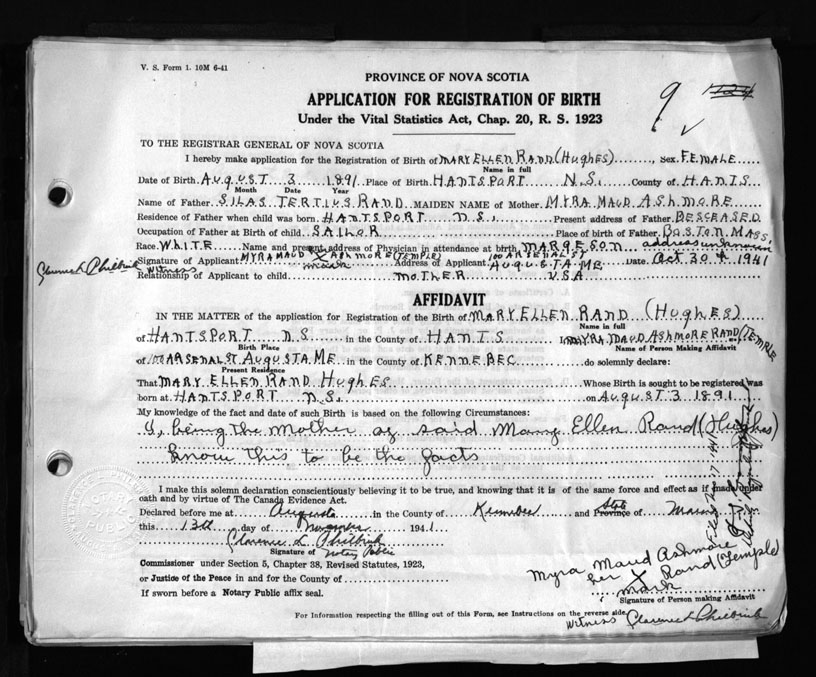 V. S. Form 1. 10M 6-41
PROVINCE OF NOVA SCOTIA
APPLICATION FOR REGISTRATION OF BIRTH
Under the Vital Statistics Act, Chap. 20, R. S. 1923
9
TO THE REGISTRAR GENERAL OF NOVA SCOTIA
I hereby make application for the Registration of Birth of MARY ELLEN RAND (Hughes), Sex FEMALE
Name in full
Date of Birth AUGUST 3 1891 Place of Birth HANTSPORT N.S. County of HANTS
Month Date Year
Name of Father SILAS TERTIUS RAND MAIDEN NAME of Mother MYRA MAUD ASHMORE
Residence of Father when child was born HANTSPORT N.S. Present address of Father DESCEASED
Occupation of Father at Birth of child SAILOR Place of birth of Father BOSTON MASS.
Race WHITE Name and present address of Physician in attendance at birth MARGESON address unknown
Signature of Applicant MYRA MAUD X ASHMORE (TEMPLE) Address of Applicant 100 ARSENAL ST AUGUSTA ME Date Oct 30th 1941
Clarence L Philbrick witness mark
Relationship of Applicant to child MOTHER USA
AFFIDAVIT
IN THE MATTER of the application for Registration of the Birth of MARY ELLEN RAND (Hughes)
Name in full
of HANTSPORT N.S. in the County of HANTS MYRA MAUD ASHMORE RAND (TEMPLE
Birth Place Name of Person Making Affidavit
of 100 ARSENAL ST AUGUSTA ME. in the County of KENNEBEC do solemnly declare:
Present Residence
That MARY ELLEN RAND Hughes Whose Birth is sought to be registered was
born at HANTSPORT N.S. on AUGUST 3 1891
My knowledge of the fact and date of such Birth is based on the following Circumstances:
I, being the Mother of said Mary Ellen Rand (Hughes)
know this to be the facts
I make this solemn declaration conscientiously believing it to be true, and knowing that it is of the same force and effect as if made under
oath and by virtue of The Canada Evidence Act.
Declared before me at Augusta in the County of Kennebec and Province State of Maine
this 13th day of November 1941
Clarence L. Philbrick
Signature of Notary Public
Commissioner under Section 5, Chapter 38, Revised Statutes, 1923,
or Justice of the Peace in and for the County of
If sworn before a Notary Public affix seal.
Myra Maud Ashmore
her X Rand (Temple)
mark
Signature of Person making Affidavit
For Information respecting the filling out of this Form, see Instructions on the reverse side.
Witness Clarence L Philbrick